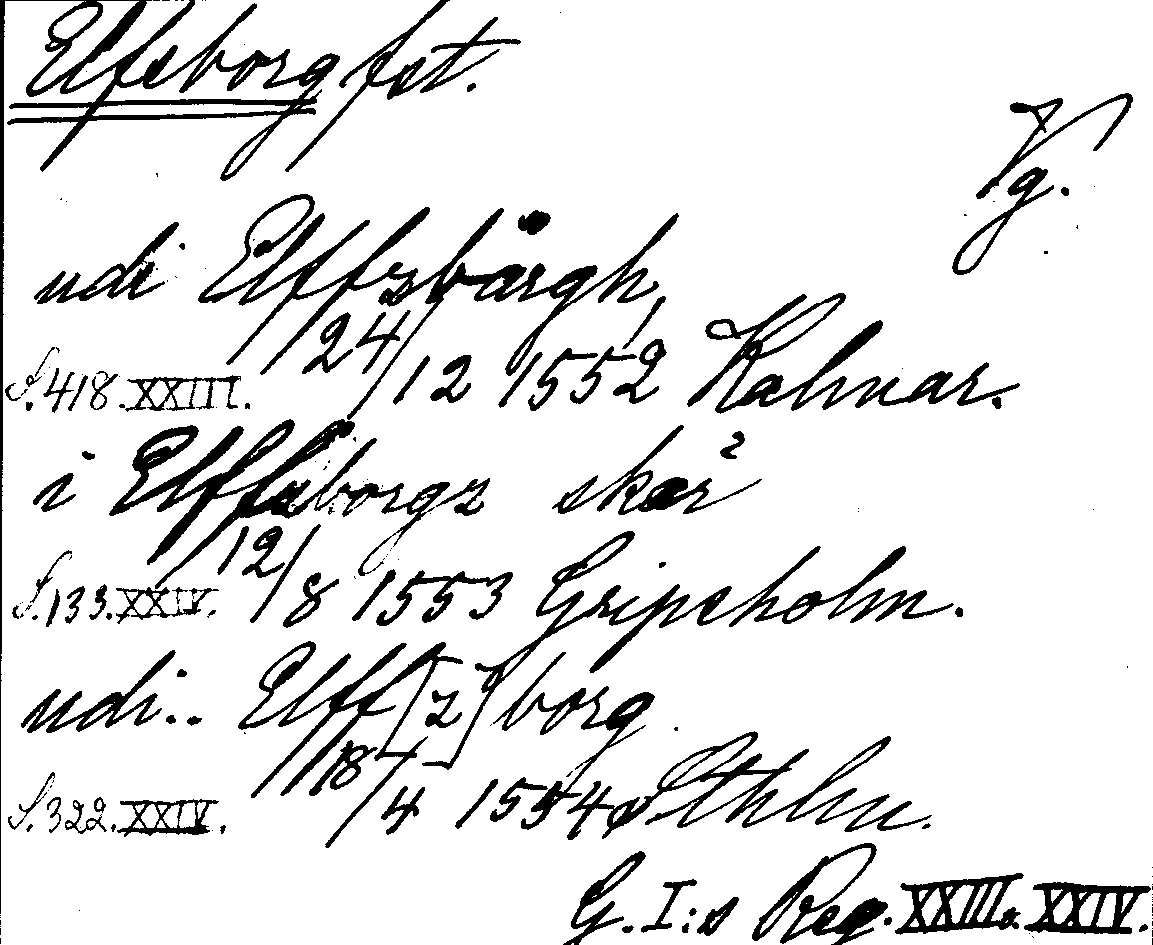 Elfsborg fst.
Vg.
udi Elffzbårgh,
S. 418. XXIII. 24/12 1552 Kalmar.
i Elffzborgz skær
S. 133. XXIV. 12/8 1553 Gripsholm.
udi.. Elff[z]borg
S. 322. XXIV. 18/4 1554 Sthlm.
G. I:s Reg. XXIII. o. XXIV.